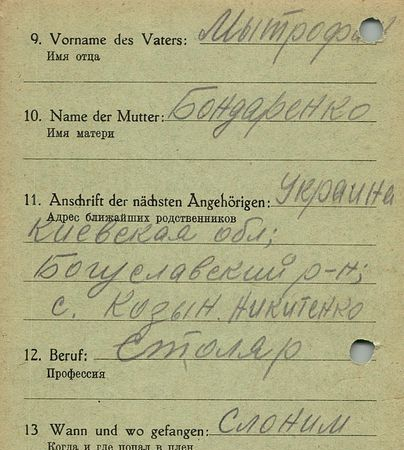 9. Vorname des Vaters: Мытрофан
Имя отца
10. Name der Mutter: Бондаренко
Имя матери
11. Anschrift der nächsten Angehörigen: Украина
Адрес ближайших родственников
Киевская обл;
Богуславский р-н;
с. Козын. Никитенко
12. Beruf: Столяр
Профессия
13 Wann und wo gefangen: Слоним
Когда и где попал в плен